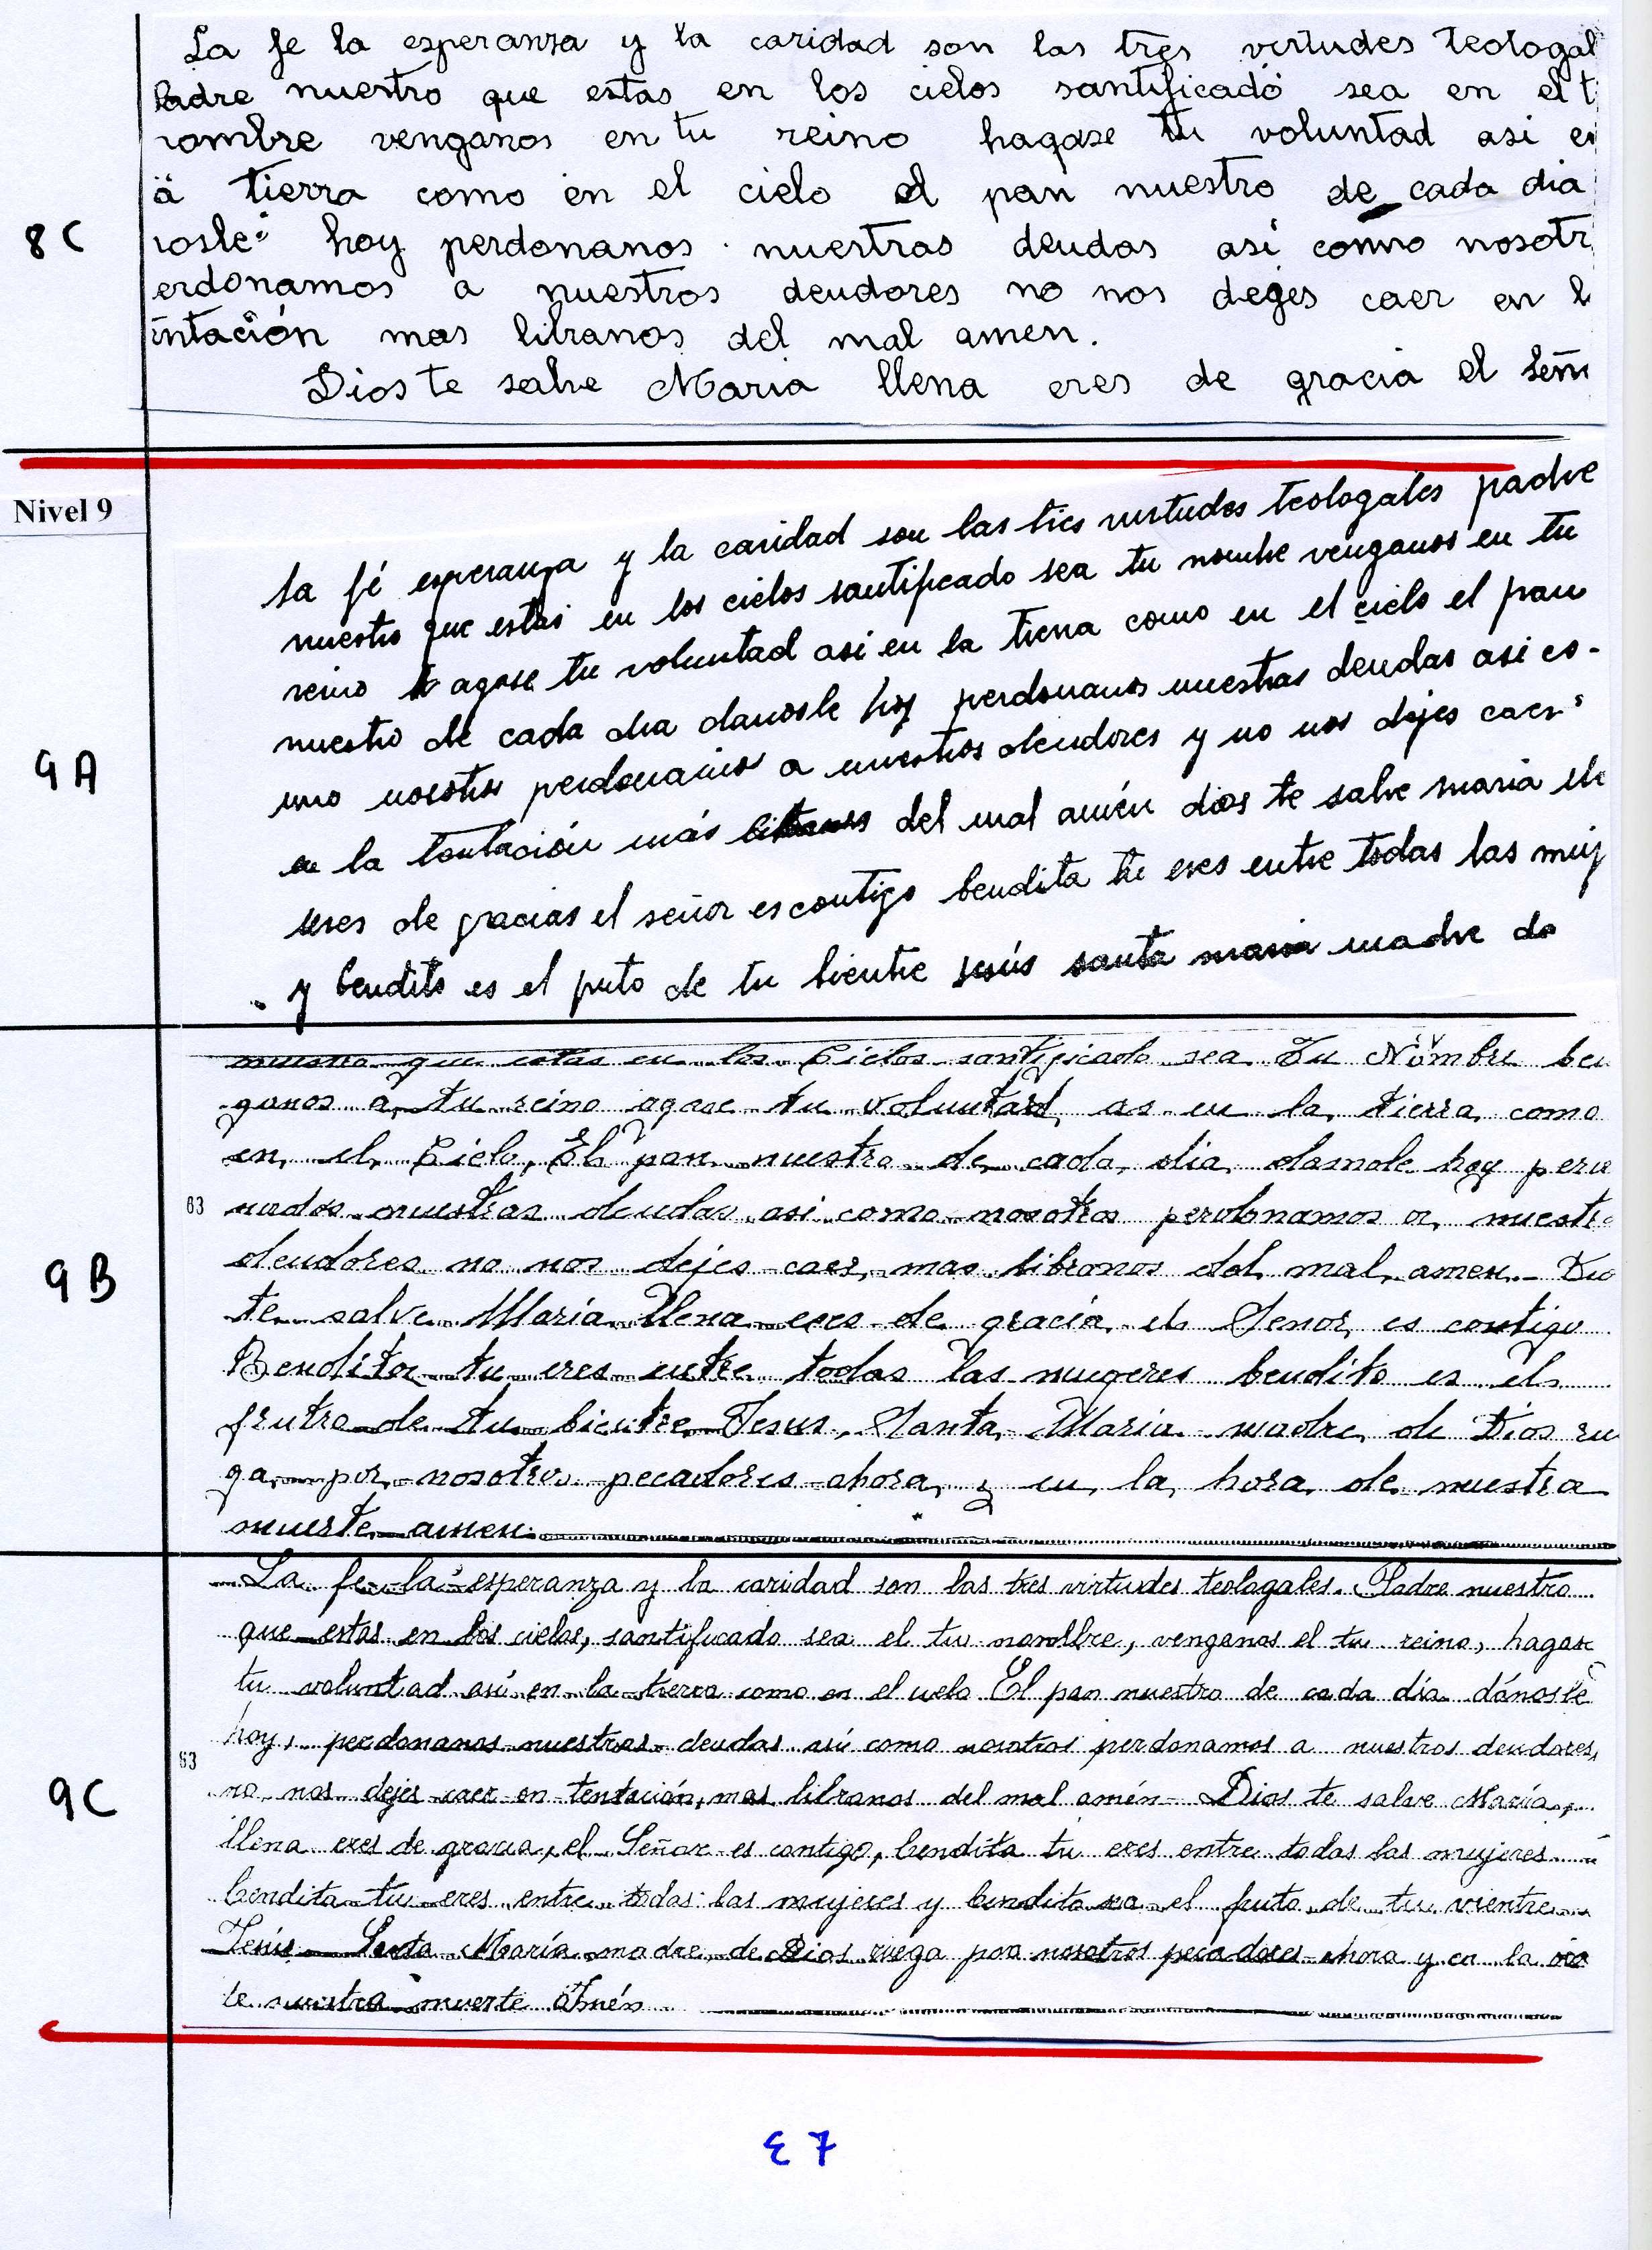 8C
La fe la esperanza y la caridad son las tres virtudes teologal
Padre nuestro que estas en los cielos santificado sea en el t
nombre venganos en tu reino hagase tu voluntad asi en
a tierra como en el cielo el pan nuestro de cada dia
nosle hoy perdonanos nuestras deudas asi como nosotr
erdonamos a nuestros deudores no nos deges caer en l
entación mas libranos del mal amen.
Dios te salve Maria llena eres de gracia el Señ
Nivel 9
9A
la fé esperanza y la caridad son las tres virtudes teologales padre
nuestro que estas en los cielos santificado sea tu nombre venganos en tu
reino agase tu voluntad asi en la tierra como en el cielo el pan
nuestro de cada dia danosle hoy perdonanos nuestras deudas asi co-
mo nosotros perdonamos a nuestros deudores y no nos dejes caer
en la tentación más libranos del mal amén dios te salve maria lle
eres de gracias el señor es contigo bendita tu eres entre todas las muj
y bendito es el fruto de tu bientre jesús santa maria madre de
9B
nuestro que estas en los Cielos santificado sea Tu Nombre be
ganos a tu reino agase tu voluntard as en la tierra como
en el Cielo, El pan nuestro de cada dia damole hoy perd
63 nados nuestras deudas asi como nosotros perdonamos a nuestr
deudores no nos dejes caer, mas libranos del mal amen. Dio
te salve María llena eres de gracia el Senor es contigo
Bendita tu eres entre todas las mugeres bendito es el
frutro de tu bientre Jesus, Santa Maria madre de Dios ru
ga por nosotros pecadores ahora y en la hora de nuestra
muerte amen.
9C
La fe la esperanza y la caridad son las tres virtudes teologales. Padre nuestro
que estas en los cielos, santificado sea el tu nombre, venganos el tu reino, hagase
tu voluntad así en la tierra como en el cielo El pan nuestro de cada día dánosle
63 hoy, perdonanos nuestras deudas así como nosotros perdonamos a nuestros deudores,
no nos dejes caer en tentación, mas libranos del mal amén Dios te salve María,
llena eres de gracia, el Señor es contigo, bendita tu eres entre todas las mujeres
bendita tu eres entre todas las mujeres y bendito sea el fruto de tu vientre
Jesús Santa María madre de Dios ruega por nosotros pecadores ahora y en la
de nuestra muerte Amén
E7